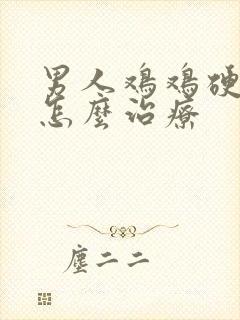 男人鸡鸡硬
怎麼治療
塵二二